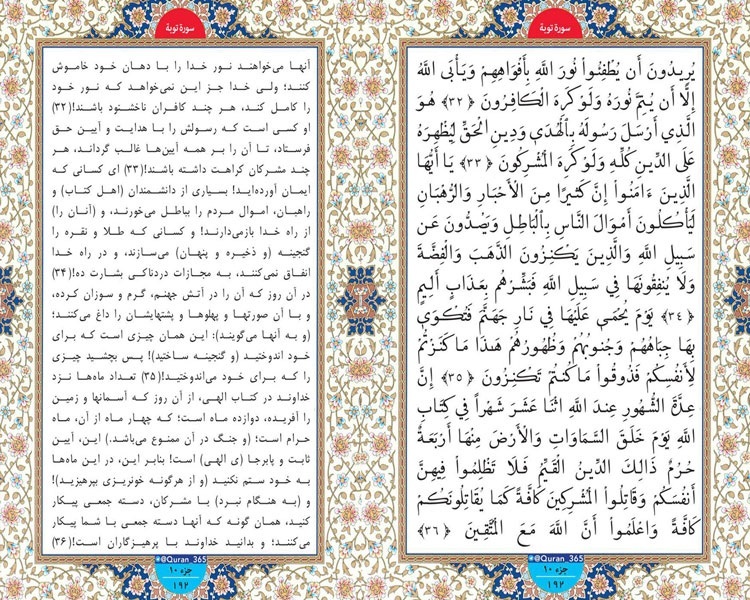 سورة توبة
یُرِیدُونَ أَن یُطْفِئُوا نُورَ اللَّهِ بِأَفْوَاهِهِمْ وَیَأْبَى اللَّهُ
إِلَّا أَن یُتِمَّ نُورَهُ وَلَوْ کَرِهَ الْکَافِرُونَ ﴿۳۲﴾ هُوَ
الَّذِي أَرْسَلَ رَسُولَهُ بِالْهُدَى وَدِینِ الْحَقِّ لِیُظْهِرَهُ
عَلَى الدِّینِ کُلِّهِ وَلَوْ کَرِهَ الْمُشْرِکُونَ ﴿۳۳﴾ یَا أَیُّهَا
الَّذِینَ ءَامَنُوا إِنَّ کَثِیرًا مِنَ الْأَحْبَارِ وَالرُّهْبَانِ
لَیَأْکُلُونَ أَمْوَالَ النَّاسِ بِالْبَاطِلِ وَیَصُدُّونَ عَن
سَبِیلِ اللَّهِ وَالَّذِینَ یَکْنِزُونَ الذَّهَبَ وَالْفِضَّةَ
وَلَا یُنفِقُونَهَا فِي سَبِیلِ اللَّهِ فَبَشِّرْهُم بِعَذَابٍ أَلِیمٍ
﴿۳۴﴾ یَوْمَ یُحْمَى عَلَیْهَا فِي نَارِ جَهَنَّمَ فَتُکْوَى
بِهَا جِبَاهُهُمْ وَجُنُوبُهُمْ وَظُهُورُهُمْ هَذَا مَا کَنَزْتُمْ
لِأَنفُسِکُمْ فَذُوقُوا مَا کُنتُمْ تَکْنِزُونَ ﴿۳۵﴾ إِنَّ
عِدَّةَ الشُّهُورِ عِندَ اللَّهِ اثْنَا عَشَرَ شَهْرًا فِي کِتَابِ
اللَّهِ یَوْمَ خَلَقَ السَّمَاوَاتِ وَالْأَرْضَ مِنْهَا أَرْبَعَةٌ
حُرُمٌ ذَالِكَ الدِّینُ الْقَیِّمُ فَلَا تَظْلِمُوا فِیهِنَّ
أَنفُسَکُمْ وَقَاتِلُوا الْمُشْرِکِینَ کَافَّةً کَمَا یُقَاتِلُونَکُمْ
کَافَّةً وَاعْلَمُوا أَنَّ اللَّهَ مَعَ الْمُتَّقِینَ ﴿۳۶﴾
@Quran_365
جزء ۱۰
۱۹۲
سورة توبة
آنها می‌خواهند نور خدا را با دهان خود خاموش
کنند؛ ولی خدا جز این نمی‌خواهد که نور خود
را کامل کند، هر چند کافران ناخشنود باشند!(۳۲)
او کسی است که رسولش را با هدایت و آیین حق
فرستاد، تا آن را بر همه آیین‌ها غالب گرداند، هر
چند مشرکان کراهت داشته باشند!(۳۳) ای کسانی که
ایمان آورده‌اید! بسیاری از دانشمندان (اهل کتاب) و
راهبان، اموال مردم را بباطل می‌خورند، و (آنان را)
از راه خدا بازمی‌دارند! و کسانی که طلا و نقره را
گنجینه (و ذخیره و پنهان) می‌سازند، و در راه خدا
انفاق نمی‌کنند، به مجازات دردناکی بشارت ده!(۳۴)
در آن روز که آن را در آتش جهنم، گرم و سوزان کرده،
و با آن صورتها و پهلوها و پشتهایشان را داغ می‌کنند؛
(و به آنها می‌گویند): این همان چیزی است که برای
خود اندوختید (و گنجینه ساختید)! پس بچشید چیزی
را که برای خود می‌اندوختید!(۳۵) تعداد ماه‌ها نزد
خداوند در کتاب الهی، از آن روز که آسمانها و زمین
را آفریده، دوازده ماه است؛ که چهار ماه از آن، ماه
حرام است؛ (و جنگ در آن ممنوع می‌باشد.) این، آیین
ثابت و پابرجا (ی الهی) است! بنابر این، در این ماه‌ها
به خود ستم نکنید (و از هرگونه خونریزی بپرهیزید)!
و (به هنگام نبرد) با مشرکان، دسته جمعی پیکار
کنید، همان گونه که آنها دسته جمعی با شما پیکار
می‌کنند؛ و بدانید خداوند با پرهیزگاران است!(۳۶)
@Quran_365
جزء ۱۰
۱۹۲